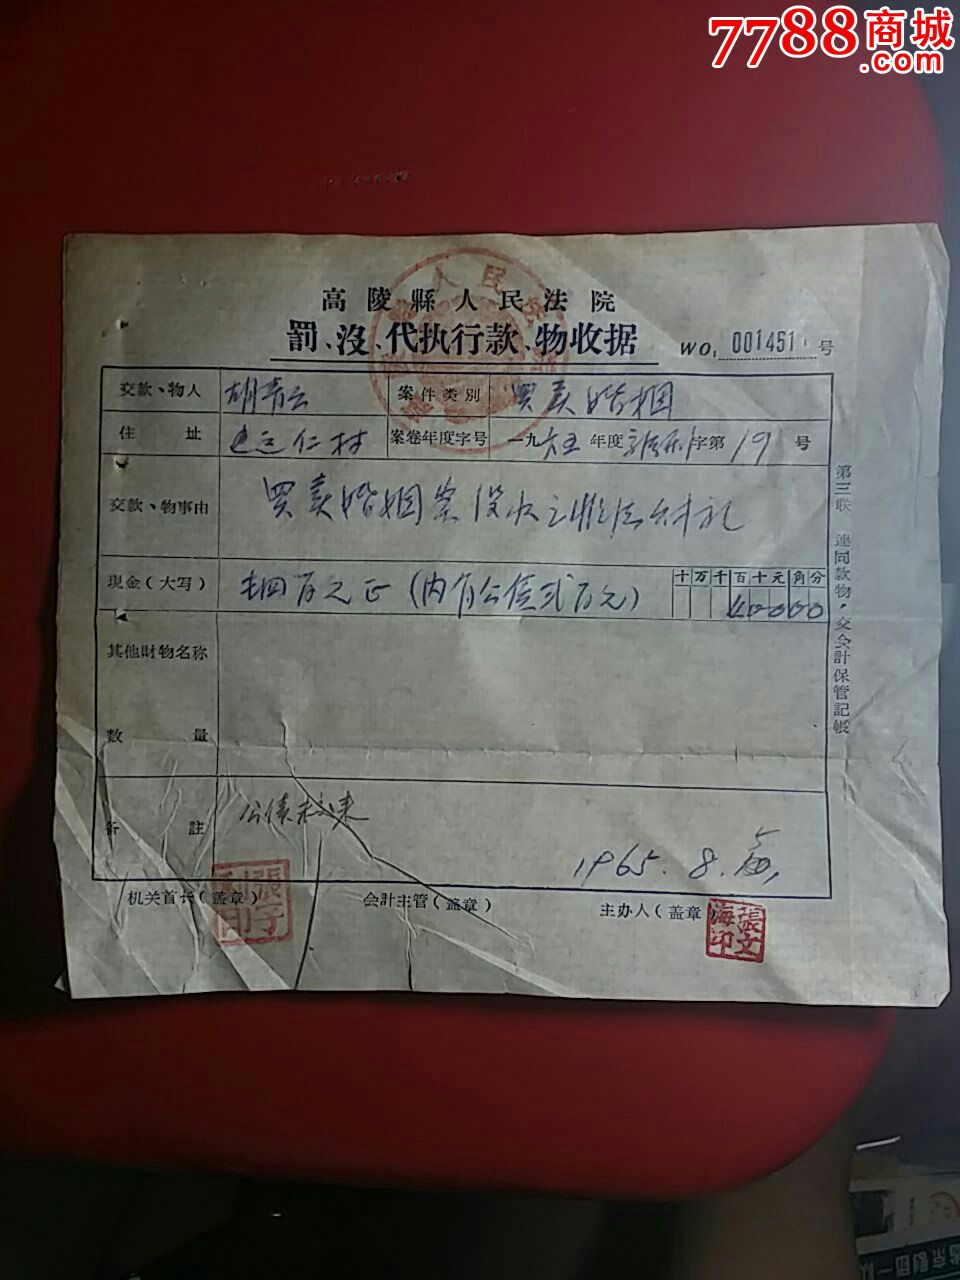 7788商城
.com
高陵縣人民法院
罰、沒、代执行款、物收据
WO, 001451 号
交款、物人 胡青云 案件类别 买卖婚姻
住址 仁村 案卷年度字号 一九六五年度 字第191号
交款、物事由 买卖婚姻案没收之非法财礼
現金(大写) 肆百元正(内有公债贰百元) 十万千百十元角分 40000
其他財物名称
数量
备註 公债
1965.8.
机关首长(盖章) 会計主管(盖章) 主办人(盖章)
張文海印
第三联 連同款物,交会計保管記帳